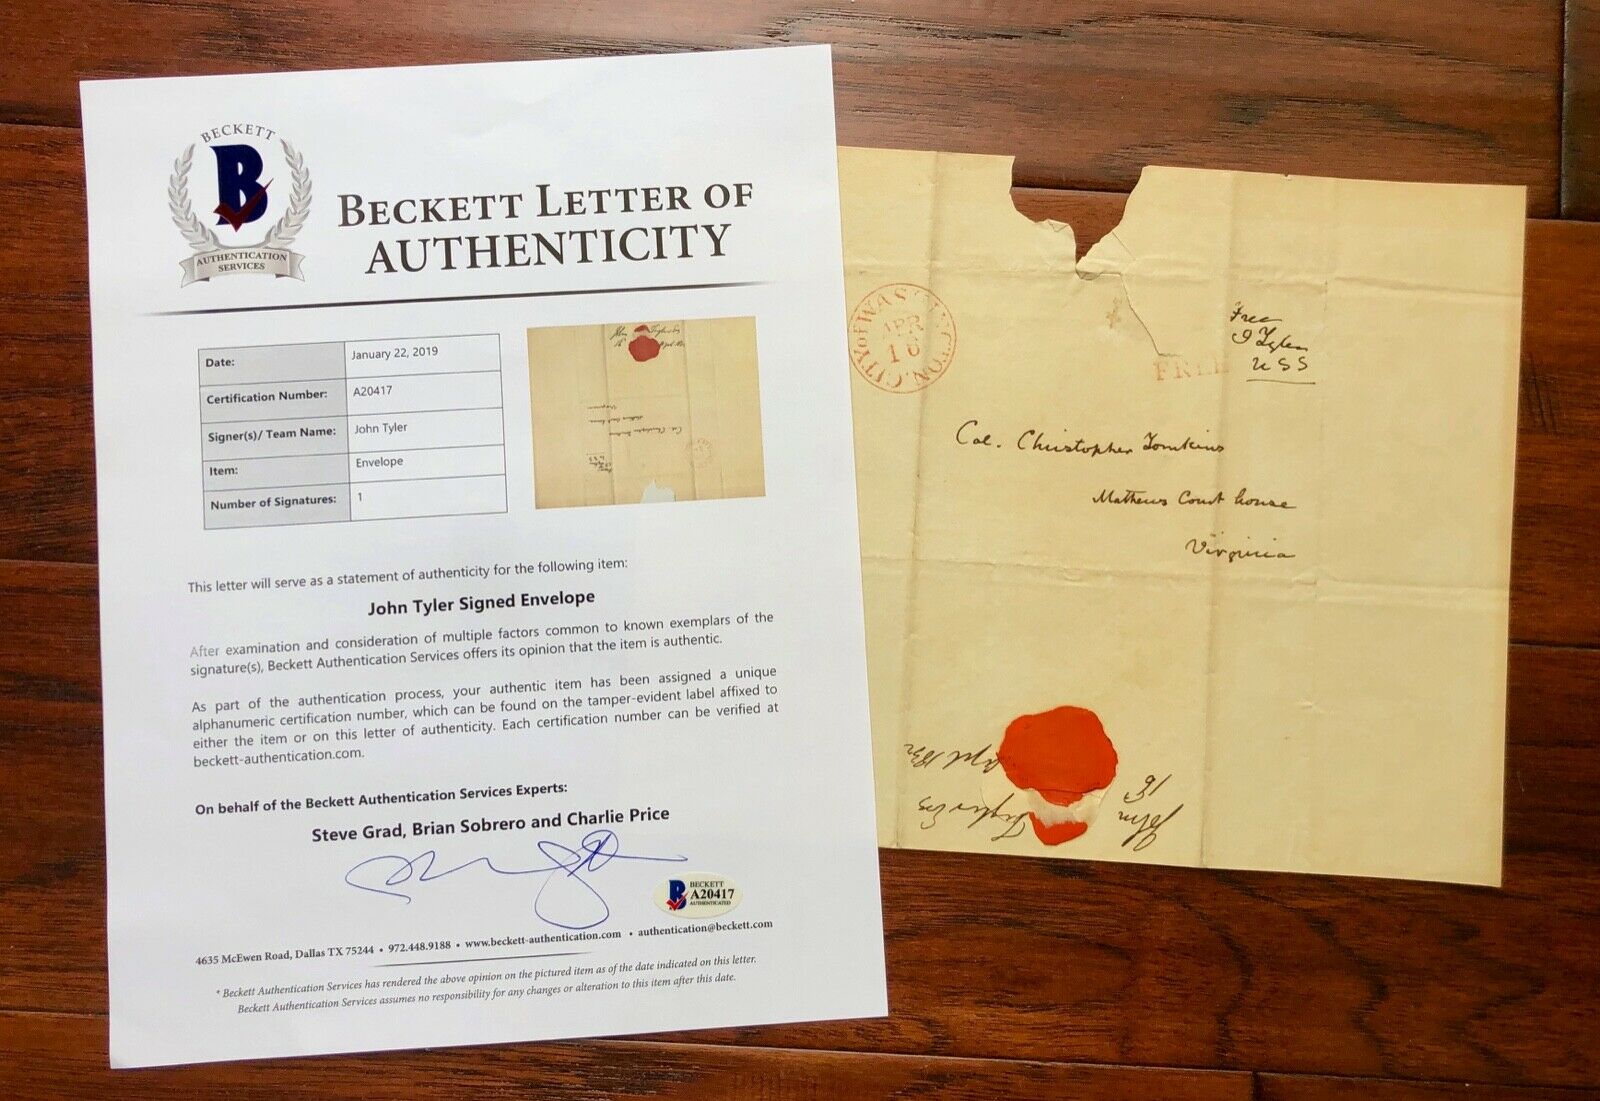 BECKETT
B
AUTHENTICATION
SERVICES
BECKETT LETTER OF
AUTHENTICITY
Date: January 22, 2019
Certification Number: A20417
Signer(s)/ Team Name: John Tyler
Item: Envelope
Number of Signatures: 1
This letter will serve as a statement of authenticity for the following item:
John Tyler Signed Envelope
After examination and consideration of multiple factors common to known exemplars of the
signature(s), Beckett Authentication Services offers its opinion that the item is authentic.
As part of the authentication process, your authentic item has been assigned a unique
alphanumeric certification number, which can be found on the tamper-evident label affixed to
either the item or on this letter of authenticity. Each certification number can be verified at
beckett-authentication.com.
On behalf of the Beckett Authentication Services Experts:
Steve Grad, Brian Sobrero and Charlie Price
BECKETT
A20417
AUTHENTICATED
4635 McEwen Road, Dallas TX 75244 • 972.448.9188 • www.beckett-authentication.com • authentication@beckett.com
* Beckett Authentication Services has rendered the above opinion on the pictured item as of the date indicated on this letter.
Beckett Authentication Services assumes no responsibility for any changes or alteration to this item after this date.
CITY OF WASHINGTON
APR
16
FREE
Free
J Tyler
U S S
Col. Christopher Tomkins
Mathews Court house
Virginia
John Tyler Esq
16 April 1832